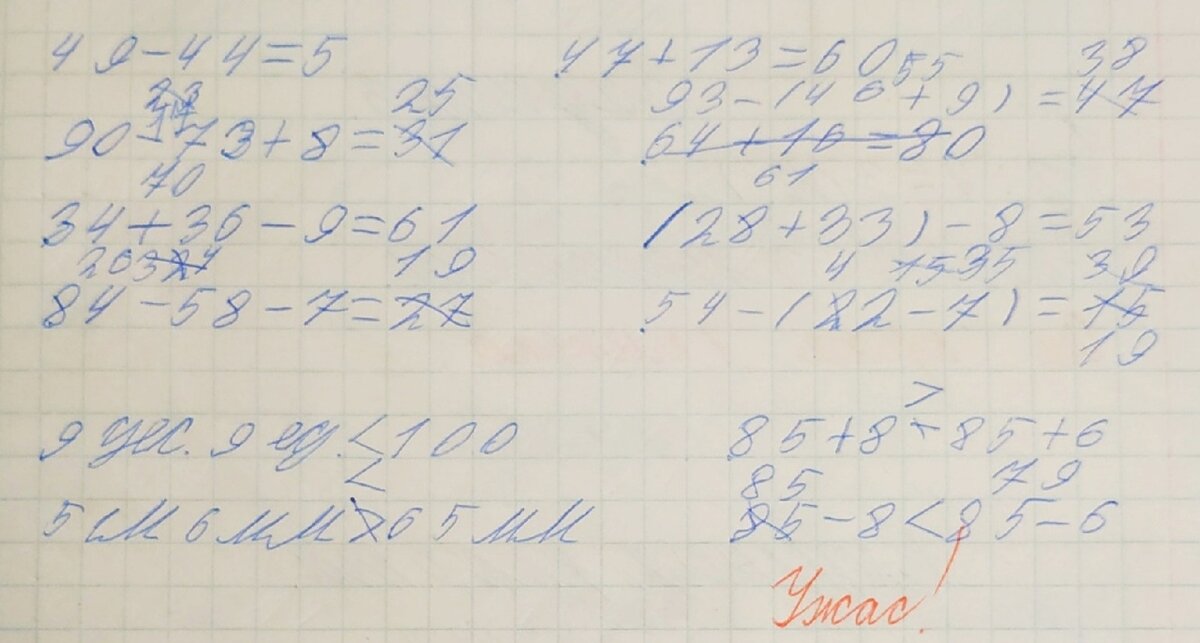 49-44=5 47+13=60
23 25 55 38
17 93-(46+9)=47
90-73+8=31 64+16=80
70 61
34+36-9=61 (28+33)-8=53
26 3 24 19 4 15 35 39
84-58-7=27 54-(22-7)=15
19
>
9 дес. 9 ед.<100 85+8 + 85+6
< 85 79
5 см 6 мм>65 мм 85-8<85-6
Ужас!